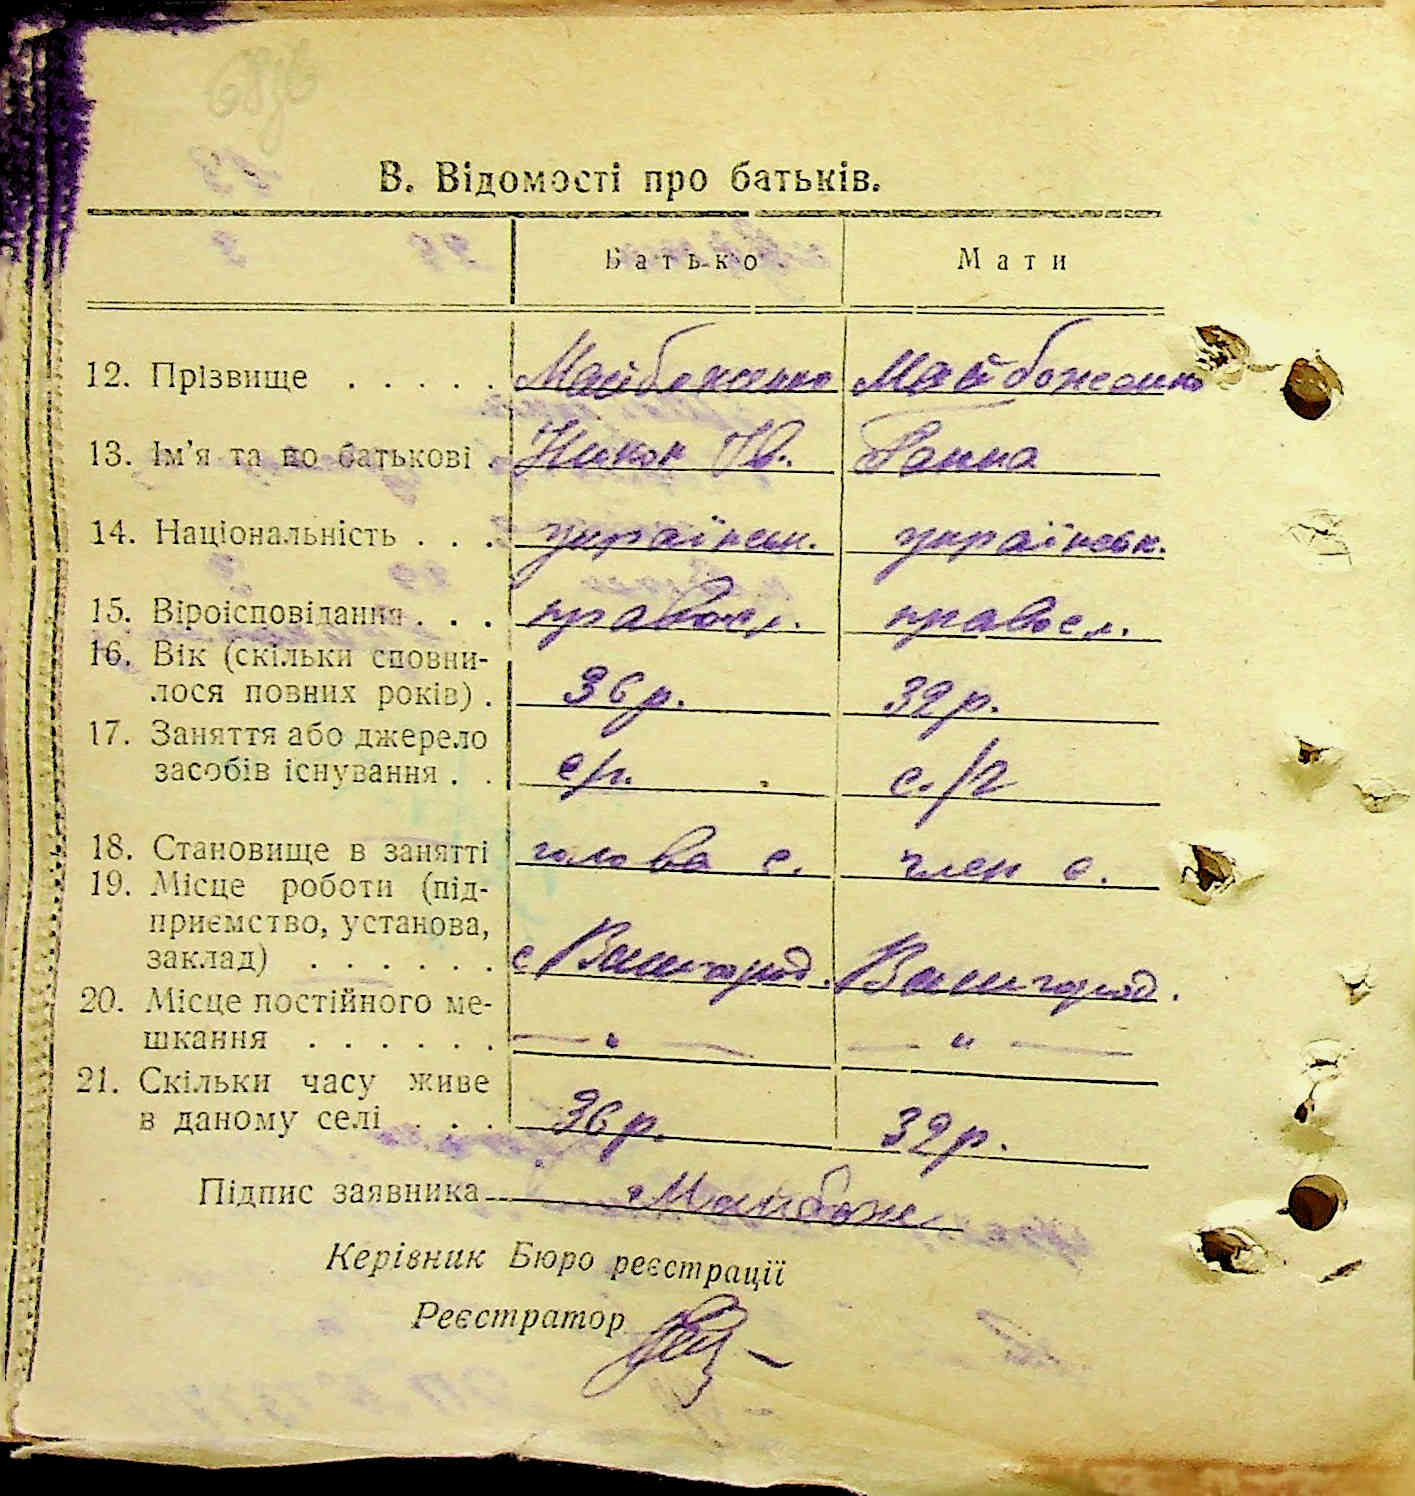 В. Відомості про батьків.
Батько Мати
12. Прізвище . . . . . Майбоженко Майбоженко
13. Ім'я та по батькові . Никон Ів. Ганна
14. Національність . . . українськ. українськ.
15. Віроісповідання . . . правосл. правосл.
16. Вік (скільки сповни-
лося повних років) . 36 р. 32 р.
17. Заняття або джерело
засобів існування . . с/г. с./г
18. Становище в занятті голова с. член с.
19. Місце роботи (під-
приємство, установа,
заклад) . . . . . . с Вашгород. Вашгород.
20. Місце постійного ме-
шкання . . . . . . — " — — " —
21. Скільки часу живе
в даному селі . . . 36 р. 32 р.
Підпис заявника Майбоже
Керівник Бюро реєстрації
Реєстратор